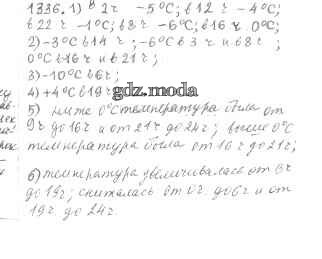 1336. 1) в 2 ч -5°C; в 12 ч -4°C;
в 22 ч -1°C; в 8 ч -6°C; в 16 ч 0°C;
2) -3°C в 14 ч ; -6°C в 3 ч и в 8 ч ;
0°C в 16 ч и в 21 ч ;
3) -10°C в 6 ч ;
4) +4°C в 19 ч
gdz.moda
5) ниже 0°C температура была от
до 16 ч и от 21 ч до 24 ч ; выше 0°C
температура была от 16 ч до 21 ч ;
6) температура увеличивалась от 6 ч
до 19 ч ; снижалась от 0 ч. до 6 ч и от
19 ч. до 24 ч.